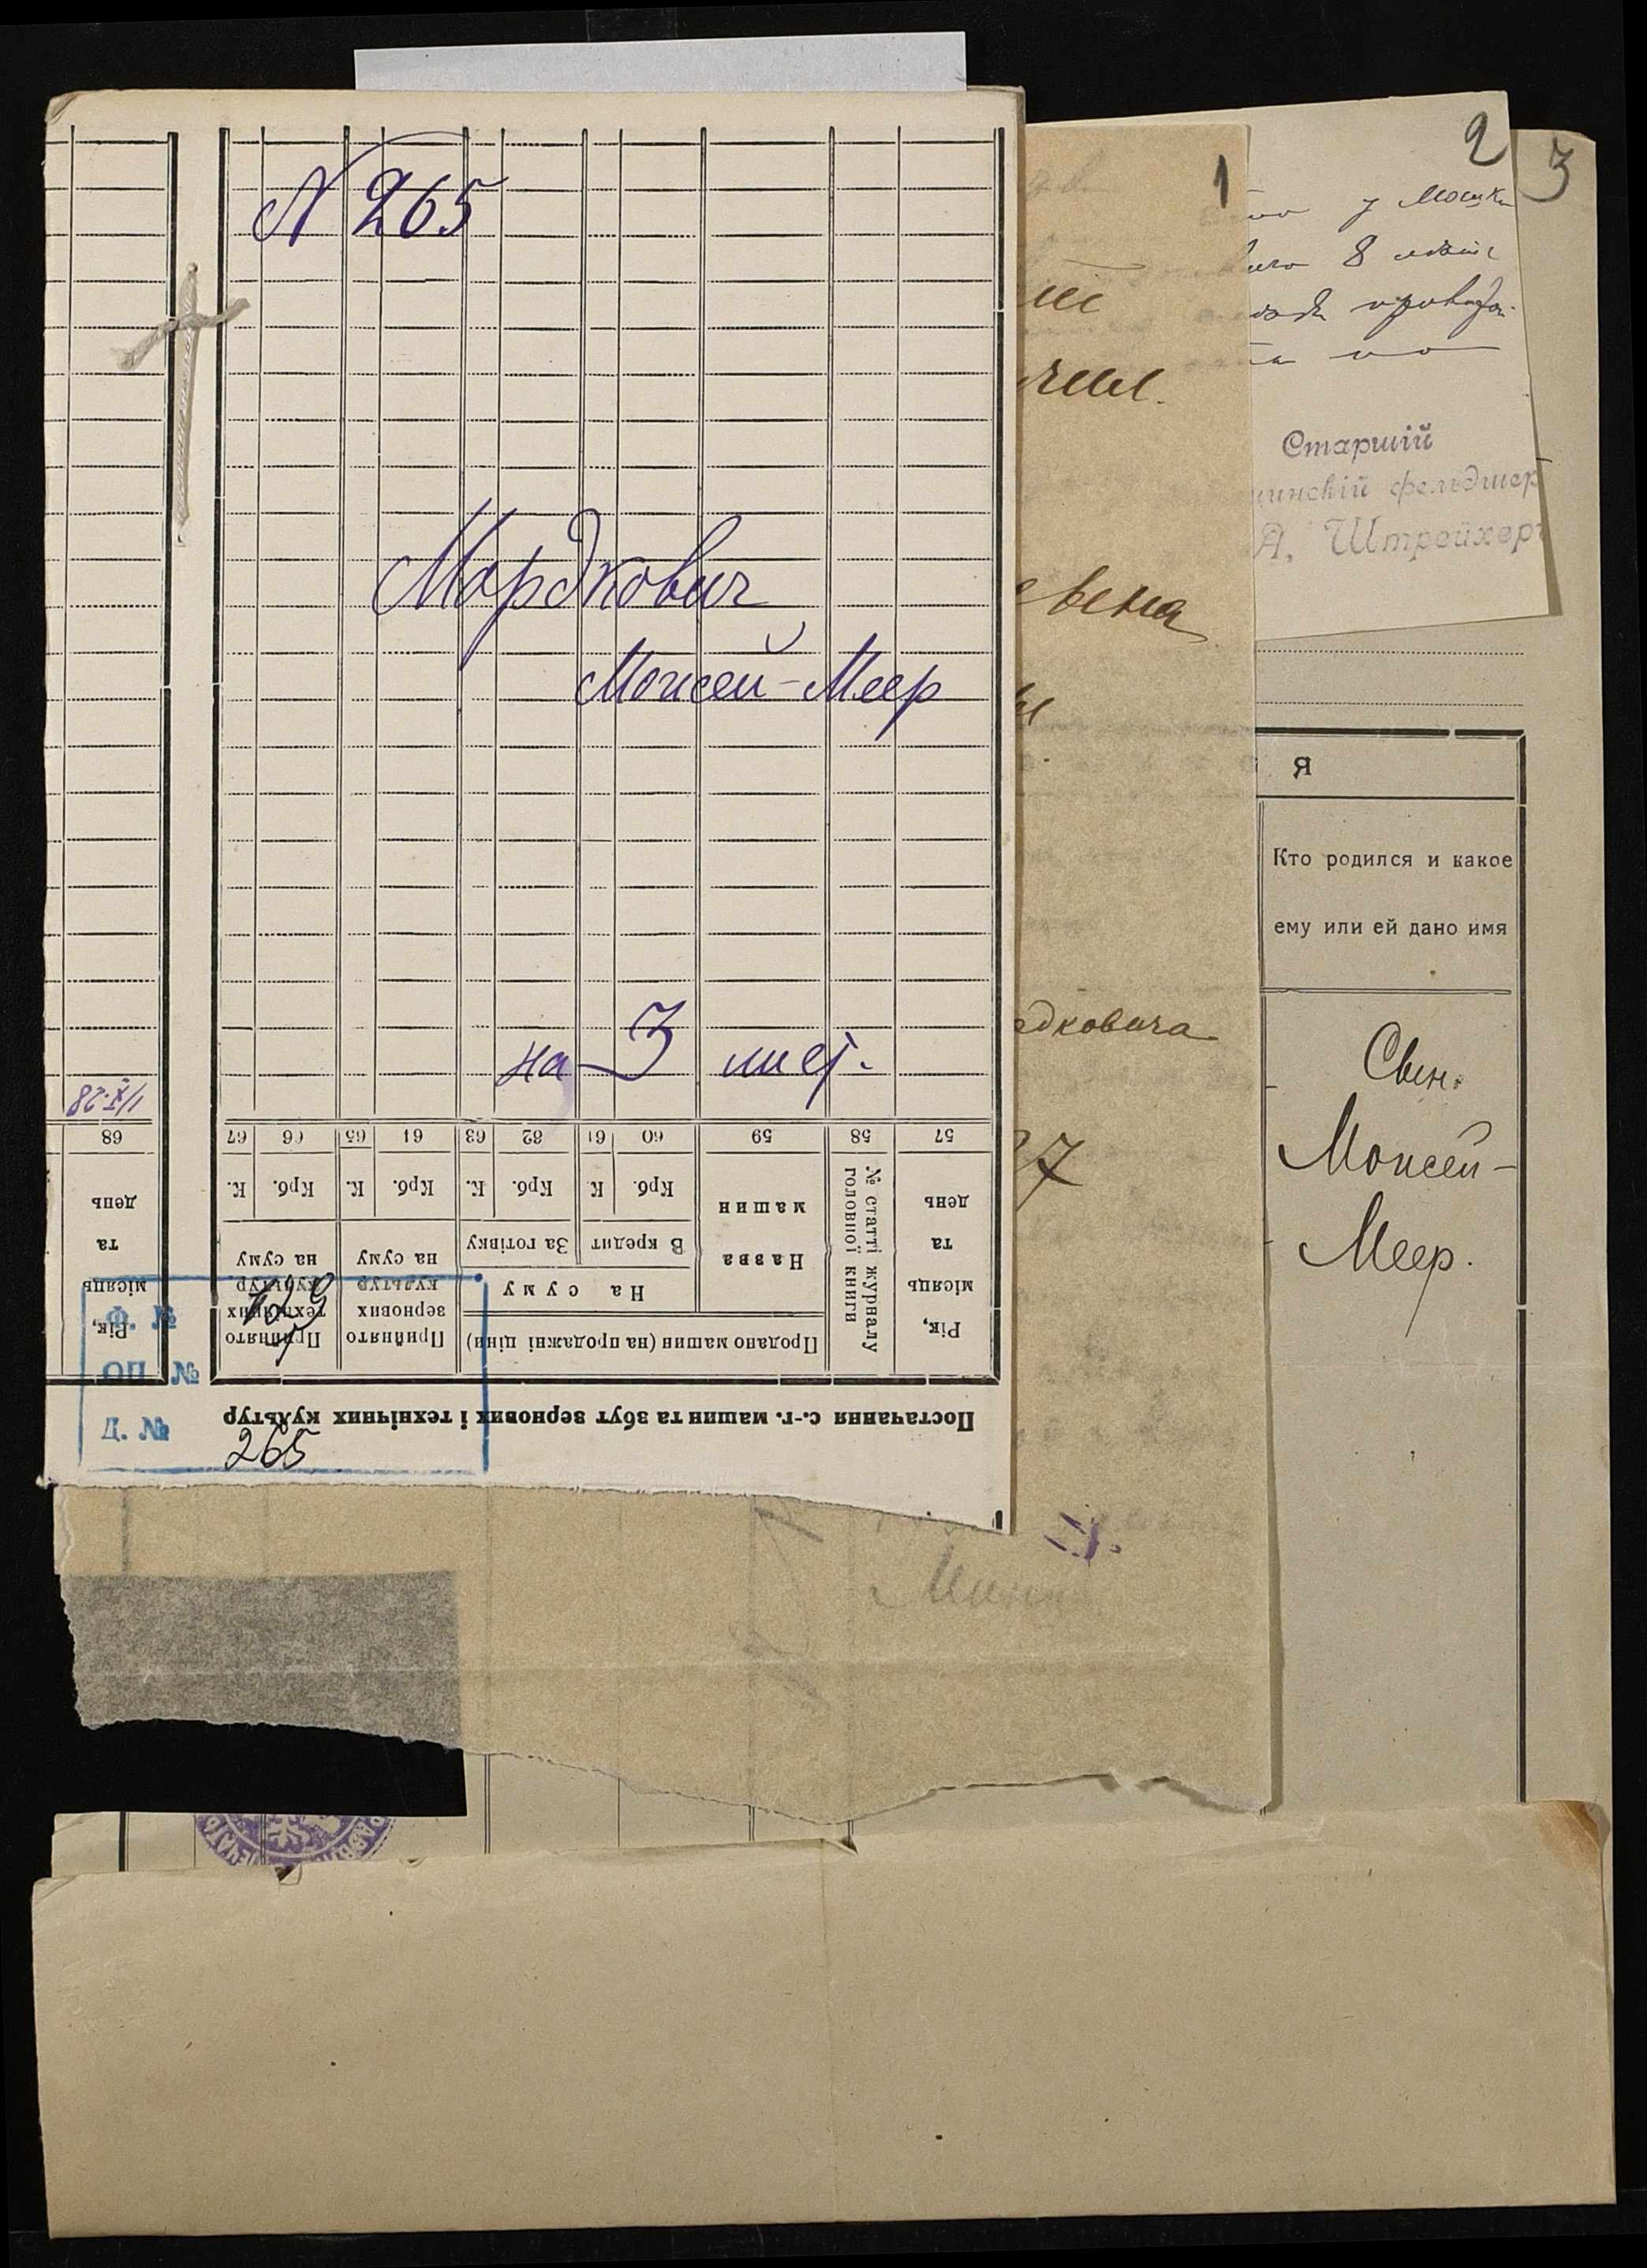 N 265
Мордкович
Моисей-Меер
на 3 лист.
1/X-28
Постачання с.-г. машин та збут зернових і технічних культур
Рік,
місяць
та
день
№ статті журналу
головної книги
Продано машин (на продажні ціни)
Назва
машин
На суму
В кредит
За готівку
Крб.
К.
Крб.
К.
Прийнято
зернових
культур
на суму
Крб.
К.
Прийнято
технічних
культур
на суму
Крб.
К.
Рік,
місяць
та
день
57
58
59
60
61
62
63
64
65
66
67
68
Ф. № 129
ОП. №
Д. № 265
1
евена
дковича
2
у Мошки
8
Старшій
фельдшер
А. Штрейхер
3
я
Кто родился и какое
ему или ей дано имя
Свин.
Моисей-
Меер.